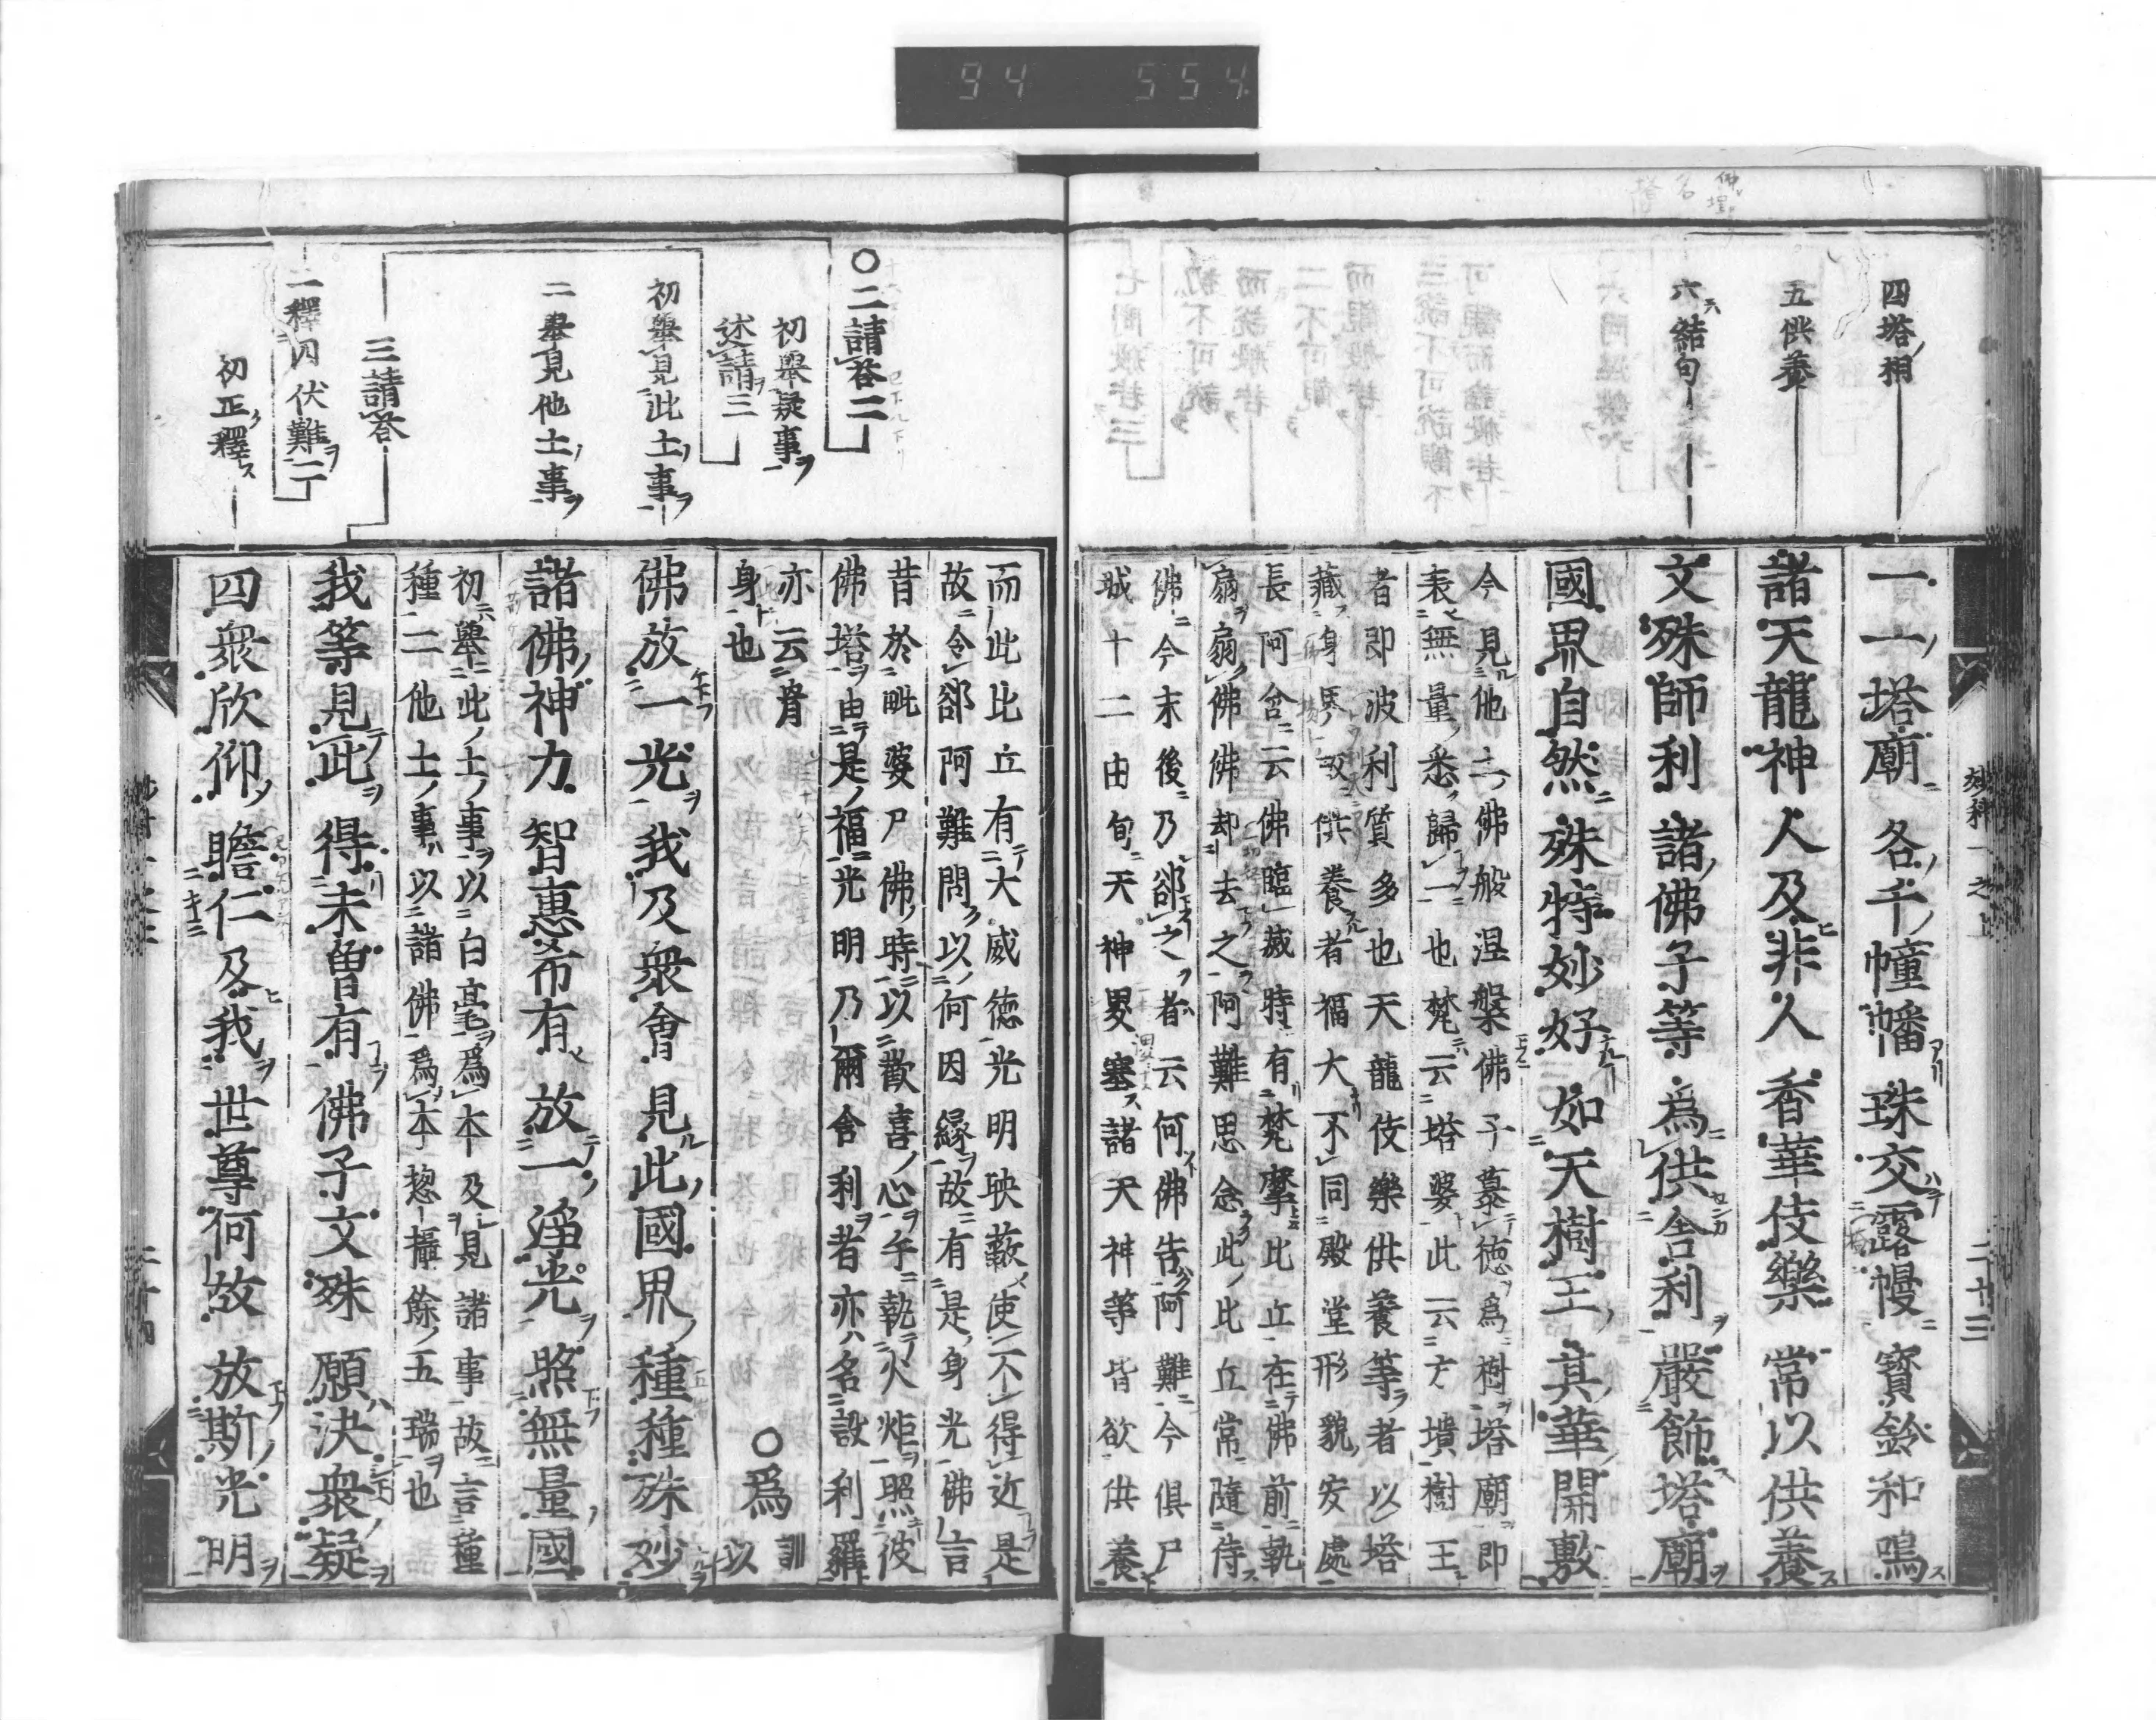 94 554
四塔相
五供養
六結句
一一塔廟各千幢幡珠交露幔寶鈴和鳴
諸天龍神人及非人香華伎樂常以供養
文殊師利諸佛子等爲供舍利嚴飾塔廟
國界自然殊特妙好如天樹王其華開敷
今見他土佛般涅槃佛子慕德爲樹塔廟即
表無量悉歸一也梵云塔婆此云方墳樹王
者即波利質多也天龍伎樂供養等者以塔
藏身界故供養者福大不同殿堂形貌安處
長阿含云佛臨滅時有梵摩比丘在佛前執
扇扇佛佛却去之阿難思念此比丘常隨侍
佛今末後乃郤之者云何佛告阿難今俱尸
城十二由旬天神畟塞諸天神等皆欲供養
妙科一之上
二十三
而此比丘有大威德光明映蔽使不得近是
故令郤阿難問以何因緣故有是身光佛言
昔於毗婆尸佛時以歡喜心手執火炬照彼
佛塔由是福光明乃爾舍利者亦名設利羅
亦云骨
身也
○爲
訓
以
○二請答二
初舉疑事
述請三
初舉見此土事
二舉見他土事
三請答
二釋伏難二
初正釋
佛放一光我及衆會見此國界種種殊妙
諸佛神力智惠希有放一淨光照無量國
初舉此土事以白毫爲本及見諸事故言種
種二他土事以諸佛爲本惣攝餘五瑞也
我等見此得未曾有佛子文殊願決衆疑
四衆欣仰瞻仁及我世尊何故放斯光明